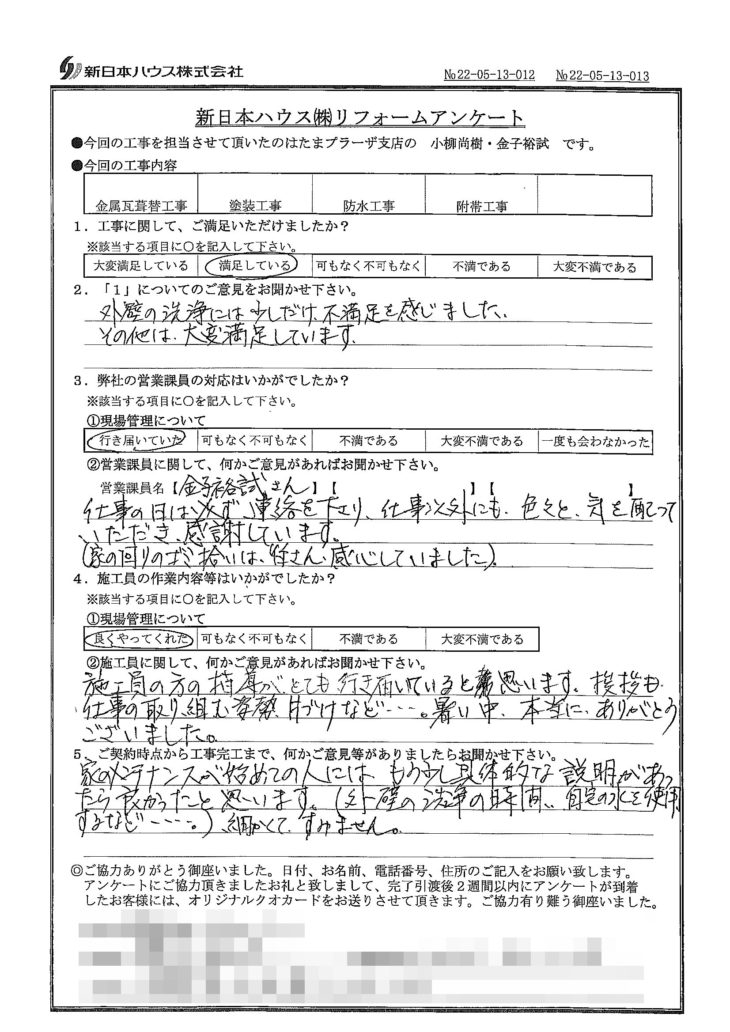 新日本ハウス株式会社
№22-05-13-012 №22-05-13-013
新日本ハウス㈱リフォームアンケート
●今回の工事を担当させて頂いたのはたまプラーザ支店の 小柳尚樹・金子裕試 です。
●今回の工事内容
金属瓦葺替工事 塗装工事 防水工事 附帯工事
1．工事に関して、ご満足いただけましたか？
※該当する項目に○を記入して下さい。
大変満足している 満足している 可もなく不可もなく 不満である 大変不満である
2．「1」についてのご意見をお聞かせ下さい。
外壁の洗浄には少しだけ、不満足を感じました、
その他は、大変満足しています。
3．弊社の営業課員の対応はいかがでしたか？
※該当する項目に○を記入して下さい。
①現場管理について
行き届いていた 可もなく不可もなく 不満である 大変不満である 一度も会わなかった
②営業課員に関して、何かご意見があればお聞かせ下さい。
営業課員名【金子裕試さん】【 】【 】
仕事の日は必ず、連絡を下さり、仕事以外にも、色々と、気を配って
いただき、感謝しています。
(家の回りのゴミ拾いは、皆さん、感心していました)。
4．施工員の作業内容等はいかがでしたか？
※該当する項目に○を記入して下さい。
①現場管理について
良くやってくれた 可もなく不可もなく 不満である 大変不満である
②施工員に関して、何かご意見があればお聞かせ下さい。
施工員の方の指導がとても行き届いていると思います。挨拶も
仕事の取り組む姿勢、片づけなど・・・・。暑い中、本当に、ありがとう
ございました。
5．ご契約時点から工事完工まで、何かご意見等がありましたらお聞かせ下さい。
家のメンテナンスが始めての人には、もう少し具体的な説明があっ
たら良かったと思います。(外壁の洗浄の時間、自宅の水を使用
するなど・・・・・。)、細かくて、すみません。
◎ご協力ありがとう御座いました。日付、お名前、電話番号、住所のご記入をお願い致します。
アンケートにご協力頂きましたお礼と致しまして、完了引渡後２週間以内にアンケートが到着
したお客様には、オリジナルクオカードをお送りさせて頂きます。ご協力有り難う御座いました。